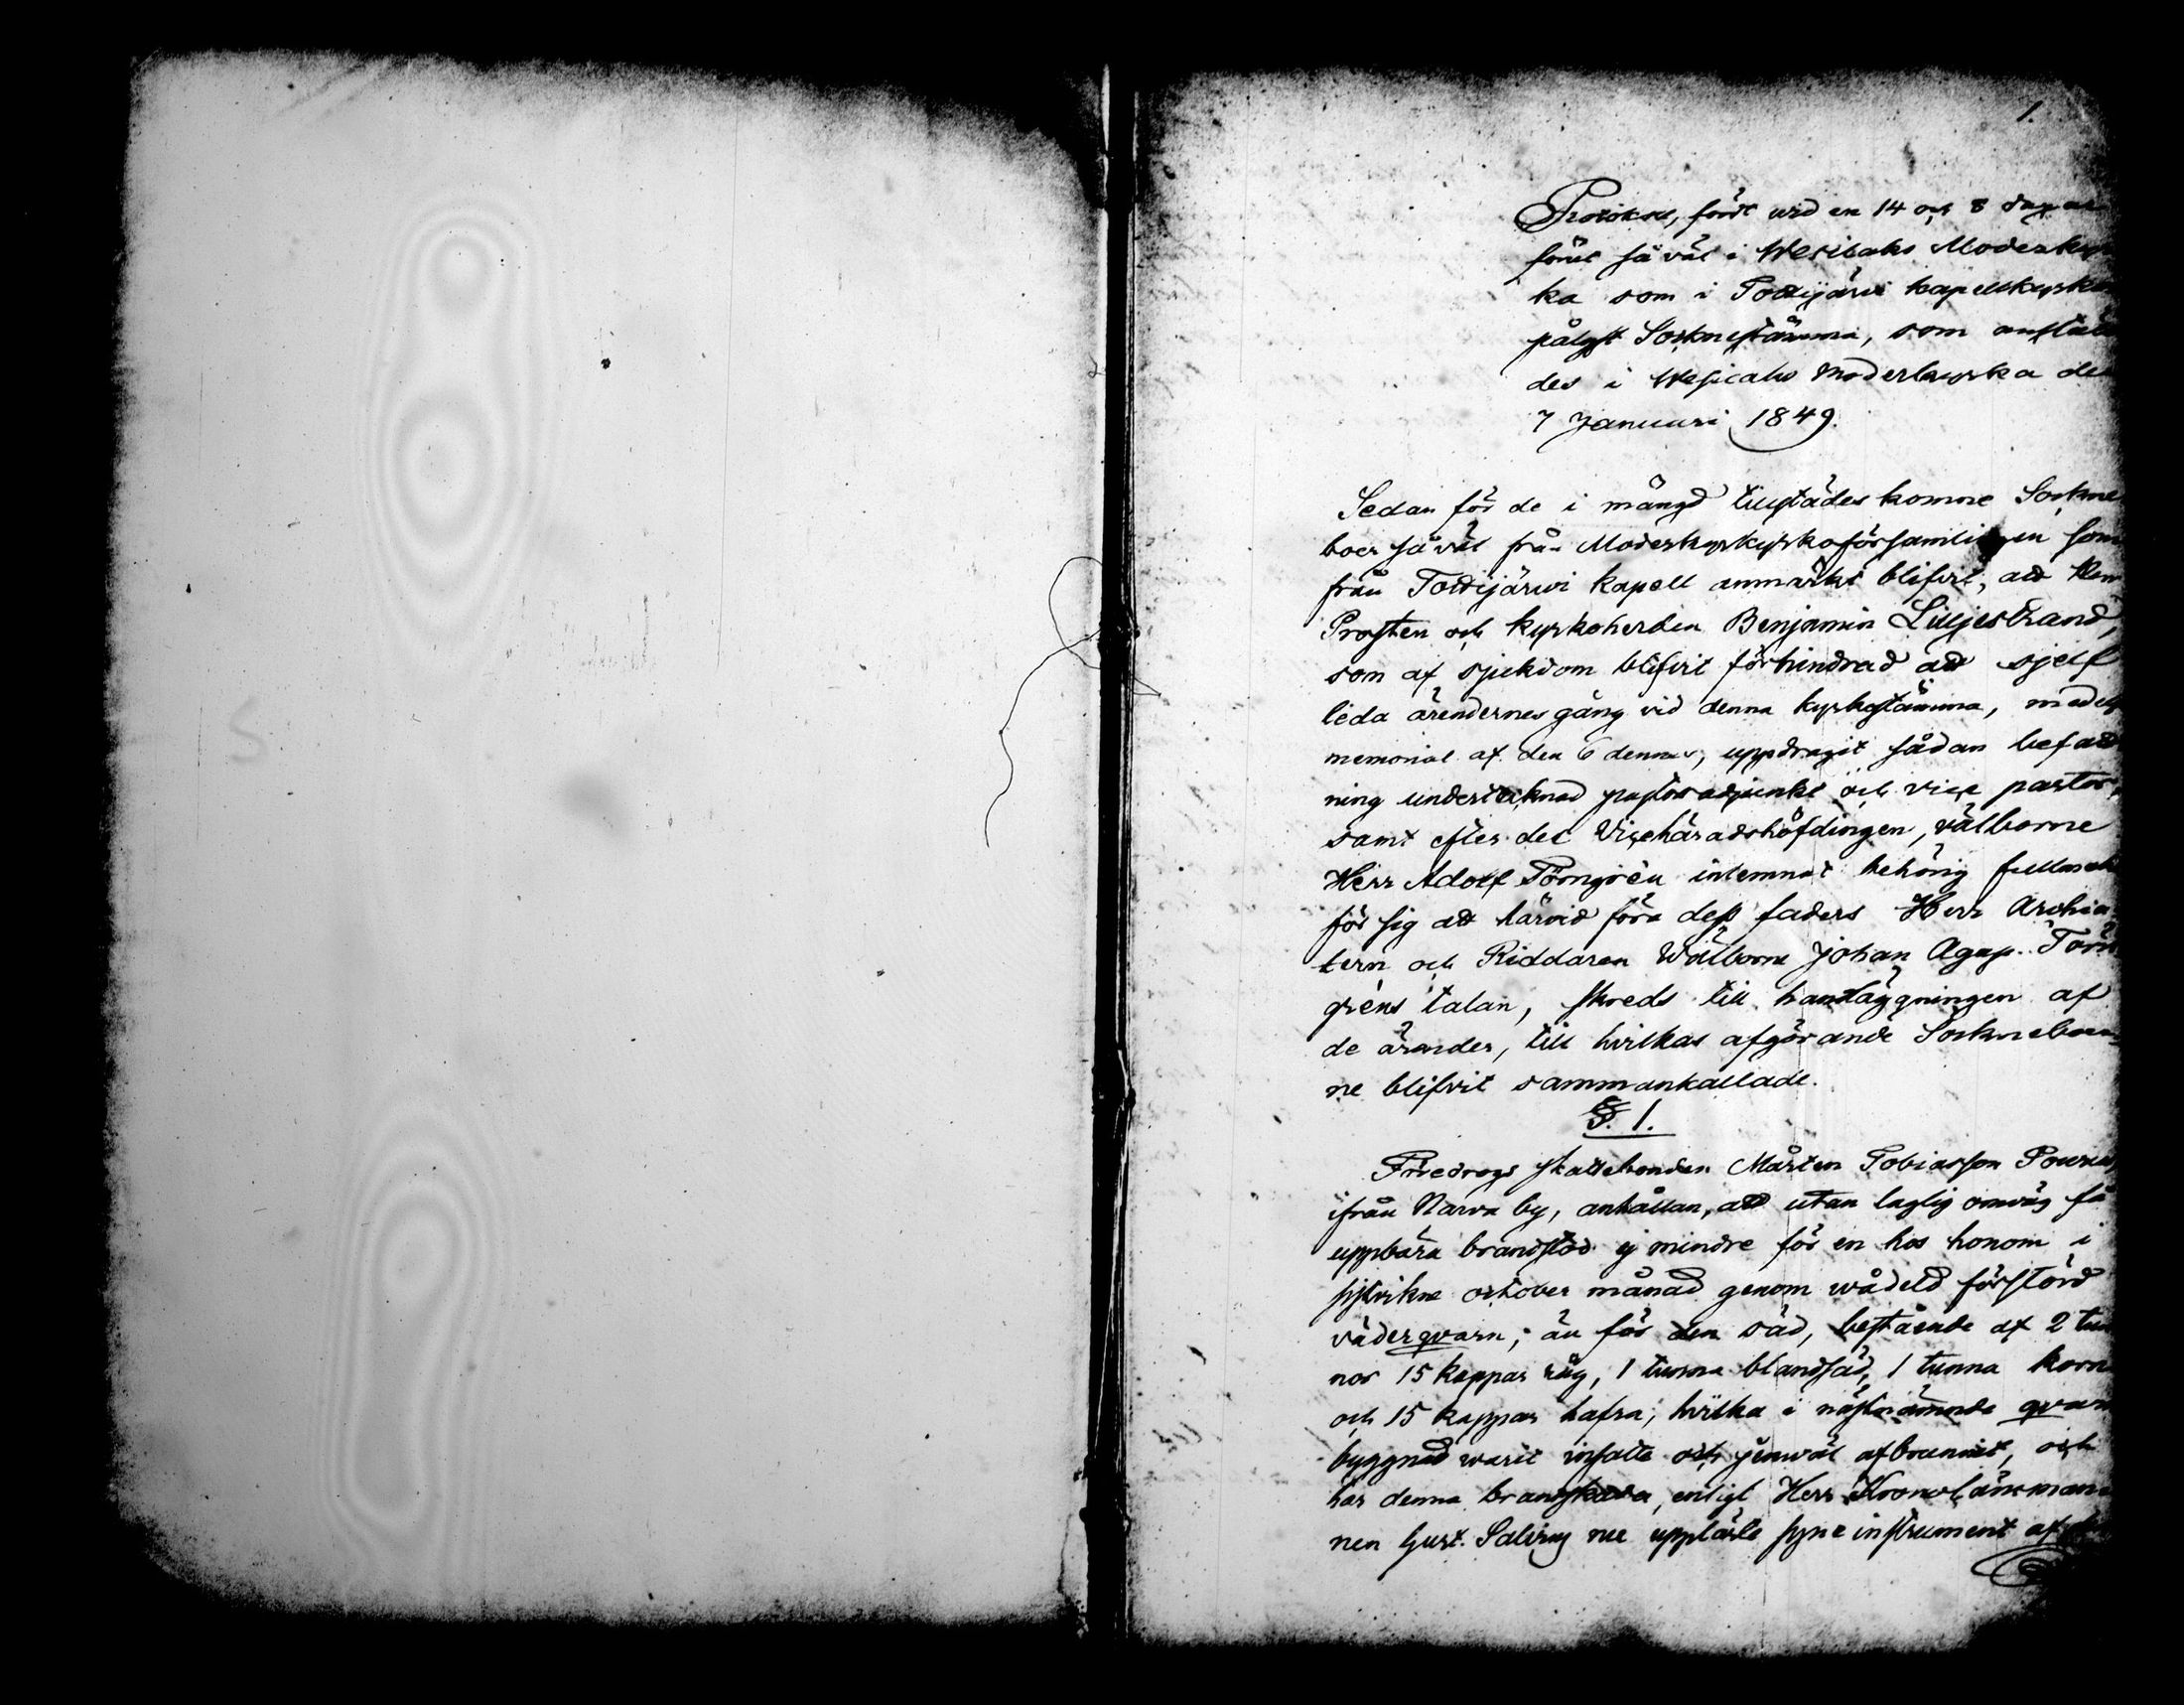 1.
Protokoll, fördt wid en 14 och 8 dagar
förut så väl i Wesilaks Moderkyr
ka som i Tottijärvi kapellkyrka
pålyst Socknestämma, som anstäl
des i Wesilaks Moderkyrka den
7 Januari 1849.
Sedan för de i mängd tillstädes komne Sockne
boer så väl från Moderkyrkyrkoförsamlingen som
från Tottijärwi kapell anmärkt blifvit, att Herr
Prosten och kyrkoherden Benjamin Liljestrand,
som af sjukdom blifvit förhindrad att sjelf
leda ärendernes gång vid denna kyrkostämma, medelst
memorial af den 6 dennes, uppdragit sådan befatt
ning undertecknad pastorsadjunkt och vice pastor,
samt efter det Vicehäradshöfdingen, välborne
Herr Adolf Törngrén inlemnat behörig fullmakt
för sig att härvid föra dess faders Herr Archia
tern och Riddaren Wälborne Johan Agap. Törn
gréns talan, skreds till handläggningen af
de ärender, till hvilkas afgörande Sockneboer
ne blifvit sammankallade.
§. 1.
Föredrogs skattebonden Mårten Tobiasson
ifrån Narva by, anhållan, att utan laglig omväg få
uppbära brandstod ej mindre för en hos honom i
sistvikne october månad genom wådeld förstörd
väderqvarn; än för den säd, bestående af 2 tun
nor 15 kappar råg, 1 tunna blandsäd, 1 tunna korn
och 15 kappar hafra; hvilka i nästnämnde qvarn
byggnad warit insatte och jemväl afbrunnit, och
har denna brandskada, enligt Herr Kronolänsman
nen Gust. nu uppläste syneinstrument af